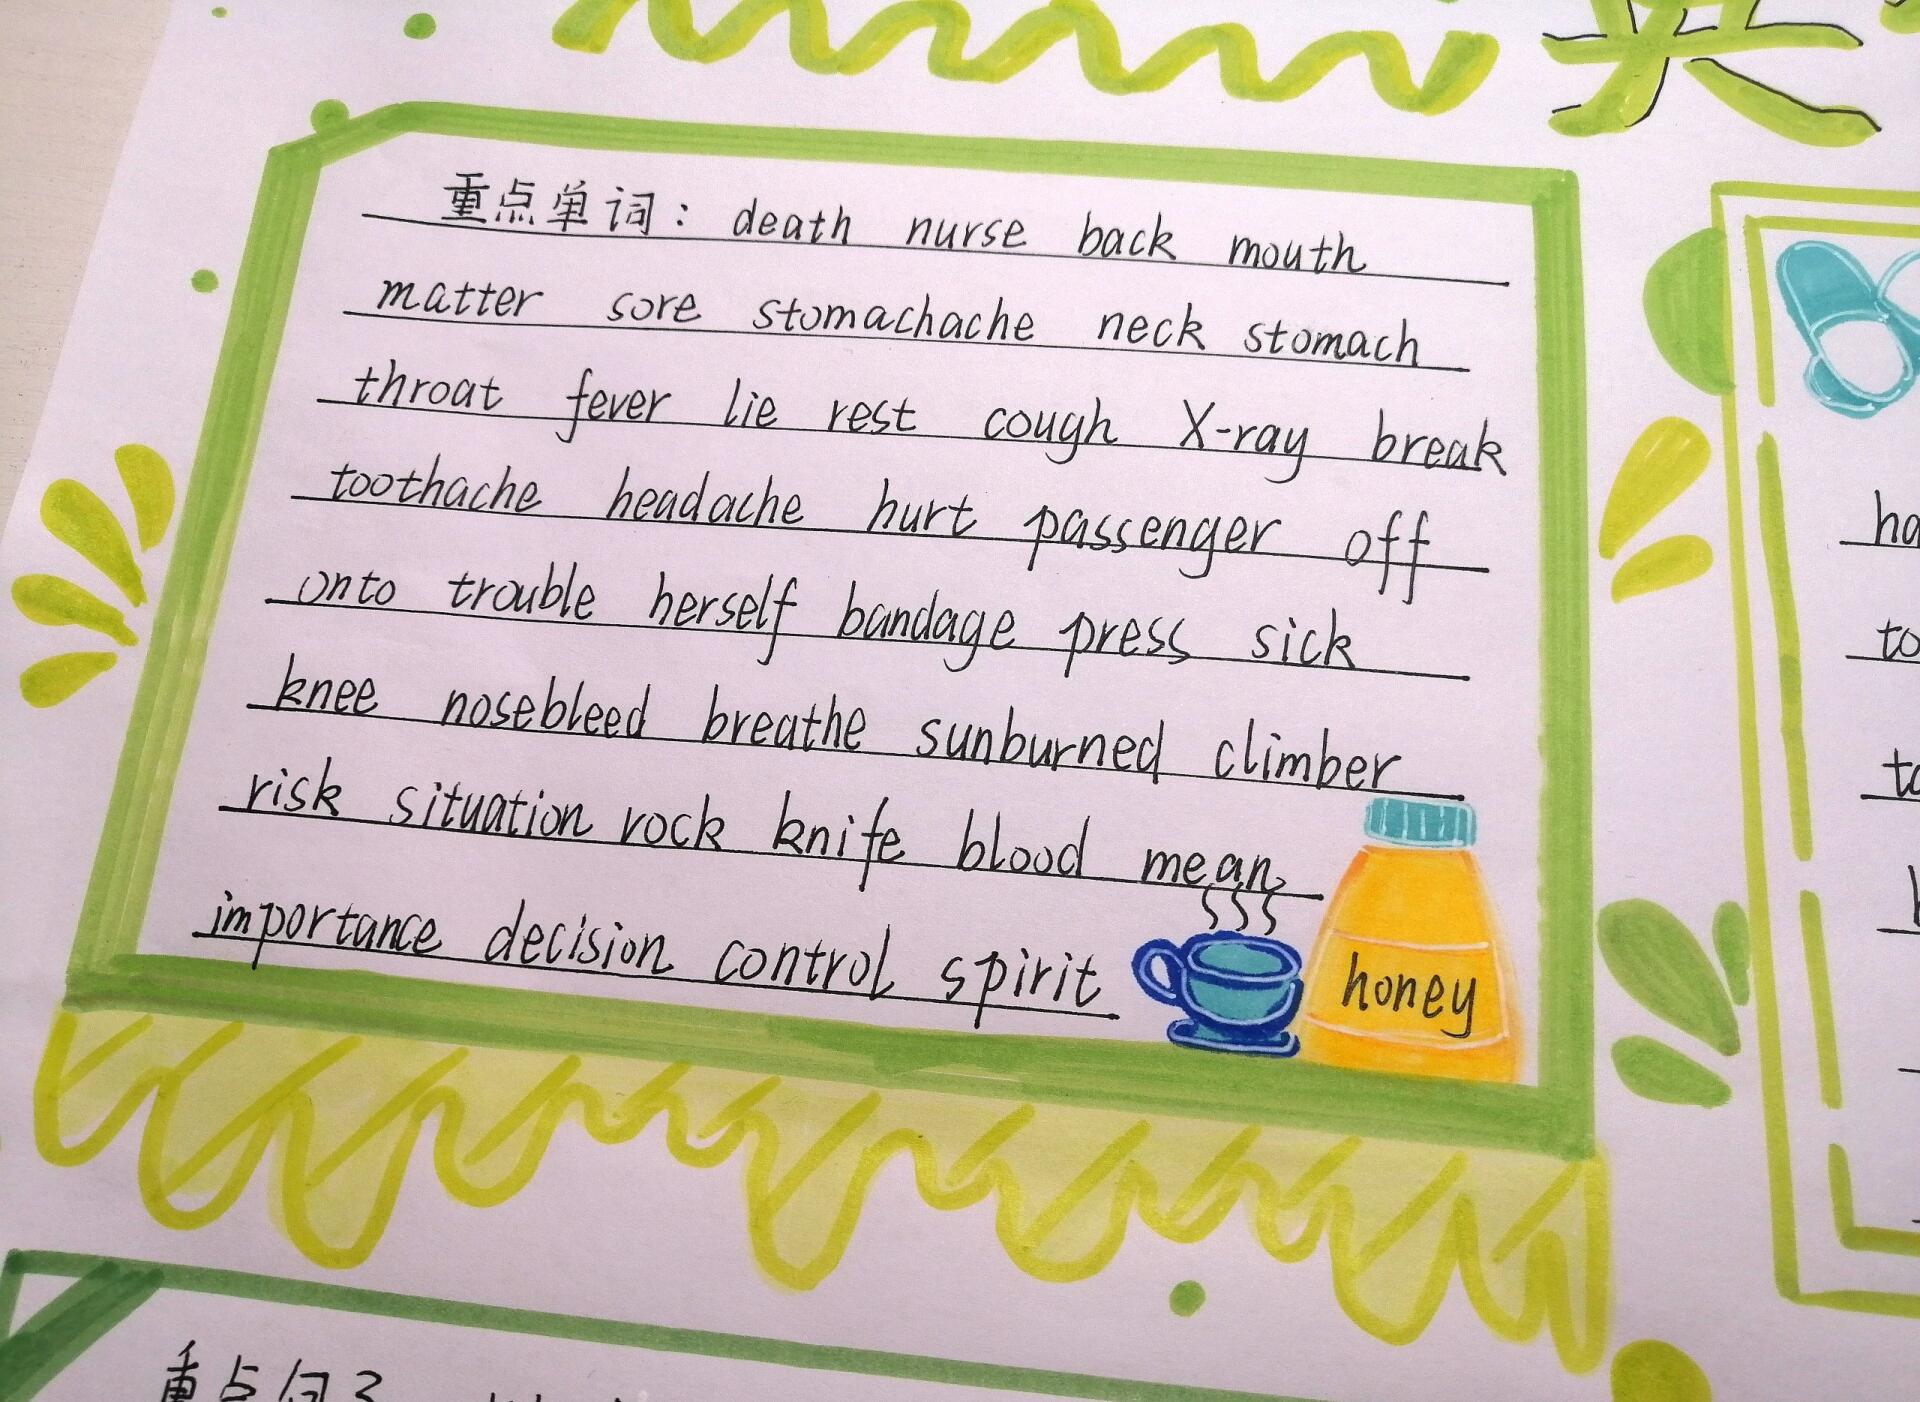 英
重点单词: death nurse back mouth
matter sore stomachache neck stomach
throat fever lie rest cough X-ray break
toothache headache hurt passenger off
onto trouble herself bandage press sick
knee nosebleed breathe sunburned climber
risk situation rock knife blood mean
importance decision control spirit
honey
ha
to
重点句子